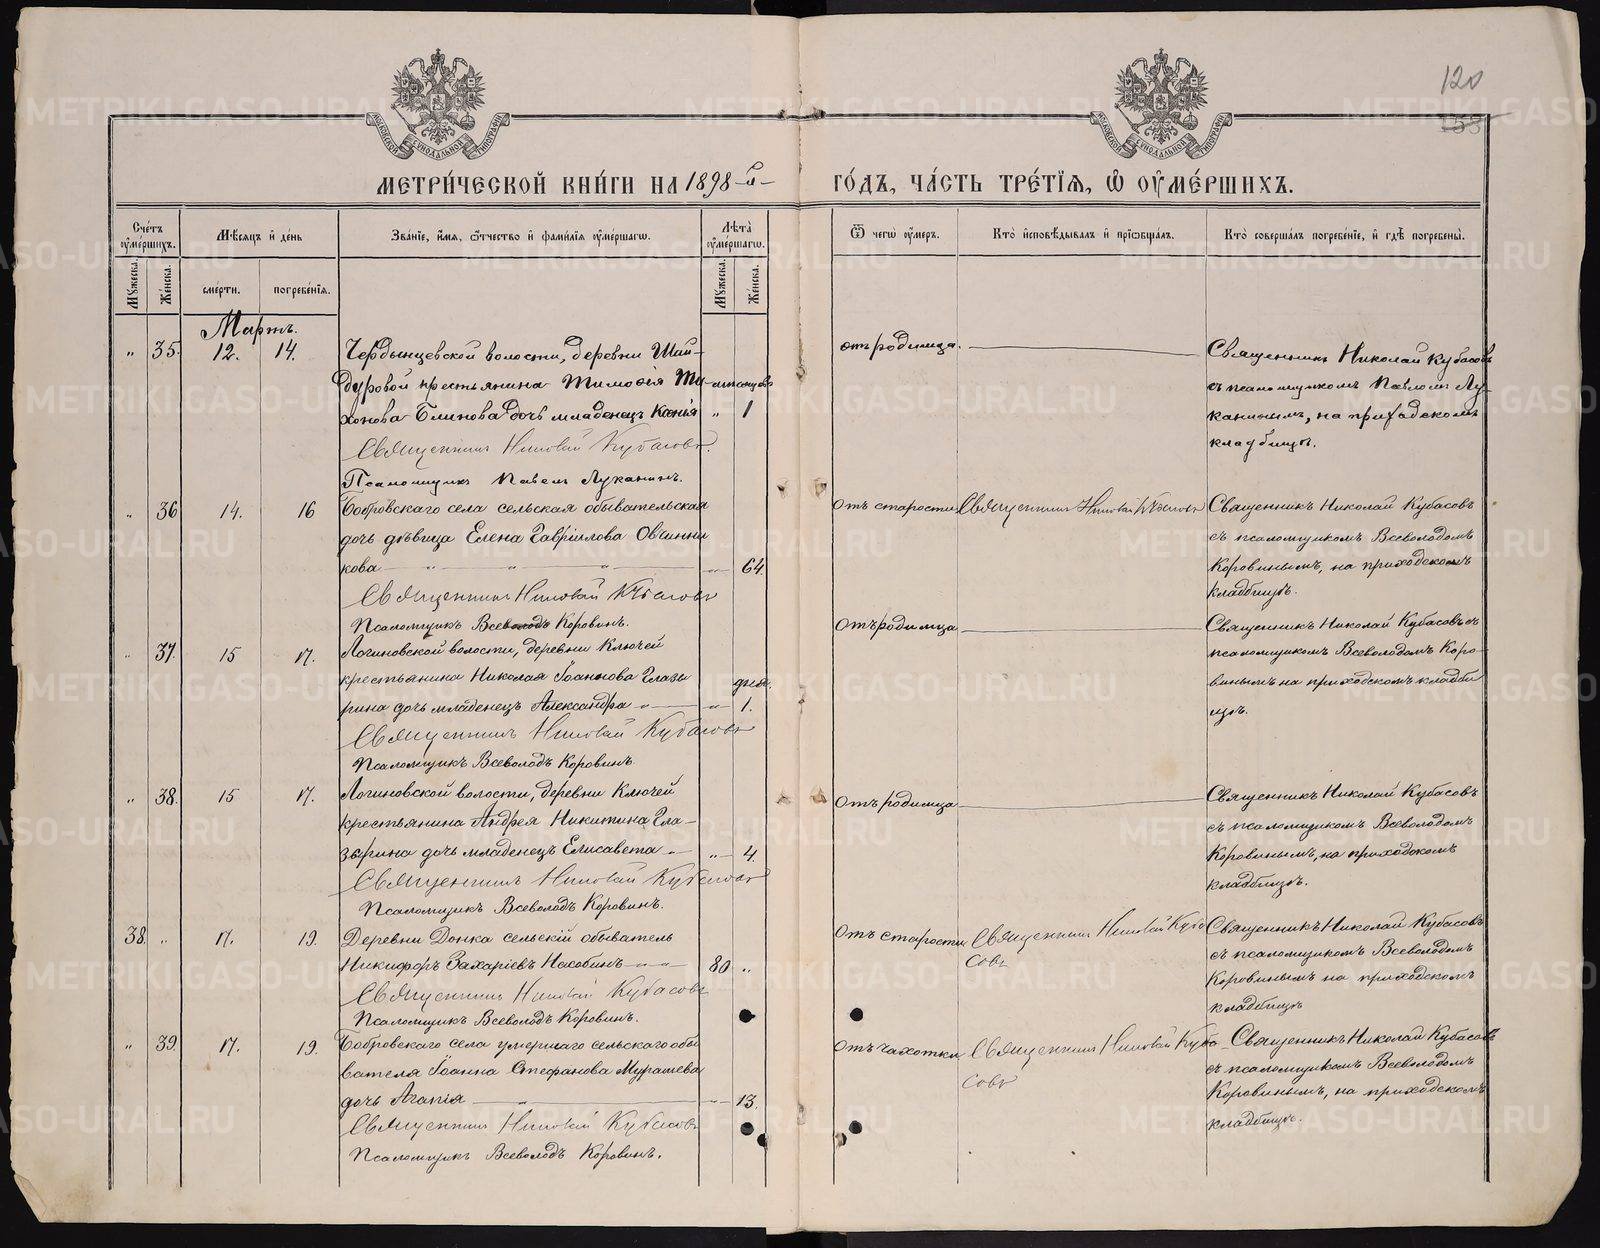 120
153
МЕТРИ́ЧЕСКОЙ КНИ́ГИ НА 1898 й ГО́ДЪ, ЧА́СТЬ ТРЕ́ТІѦ, Ѽ ОУМЕ́РШИХЪ.
МОСКОВСКОЙ СѴНОДАЛЬНОЙ ТИПОГРАФІИ
МОСКОВСКОЙ СѴНОДАЛЬНОЙ ТИПОГРАФІИ
Сче́тъ оуме́ршихъ.
Мꙋжеска.
Же́нска.
Мѣ́сяцъ и де́нь
сме́рти.
погребе́нїя.
Зва́нїе, и́мя, ѻ́тчество и фами́лїя оуме́ршагѡ.
Лѣта̀ оуме́ршагѡ.
Мꙋжеска.
Же́нска.
Ѿ чегѡ̀ оу́меръ.
Кто̀ и҆сповѣ́дывалъ и҆ прїѡбща́лъ.
Кто̀ соверша́лъ погребе́нїе, и҆ гдѣ̀ погребены̀.
Мартъ.
„ 35. 12. 14.
Чердынцевской волости, деревни Шай-
дуровой крестьянина Тимофея Ти-
хонова Блинова дочь младенецъ Ксенія
мѣсяцовъ
„ 1
Священникъ Николай Кубасовъ.
Псаломщикъ Павелъ Луканинъ.
отъ родимца.
Священникъ Николай Кубасовъ
съ псаломщикомъ Павломъ Лу
канинымъ, на приходскомъ
кладбищѣ.
„ 36 14. 16
Бобровскаго села сельская обывательская
дочь дѣвица Елена Гавріилова Овчинни
кова „ „ „ „ 64.
Священникъ Николай Кубасовъ
Псаломщикъ Всеволодъ Коровинъ.
Отъ старости
Священникъ Николай Кубасовъ
Священникъ Николай Кубасовъ
съ псаломщикомъ Всеволодомъ
Коровинымъ, на приходскомъ
кладбищѣ.
„ 37. 15 17.
Логиновской волости, деревни Ключей
крестьянина Николая Іоаннова Глазы
рина дочь младенецъ Александра „ „
дней.
1.
Священникъ Николай Кубасовъ
Псаломщикъ Всеволодъ Коровинъ
Отъ родимца
Священникъ Николай Кубасовъ съ
псаломщикомъ Всеволодомъ Коро-
винымъ на приходскомъ кладби
щѣ.
„ 38. 15 17.
Логиновской волости, деревни Ключей
крестьянина Андрея Никитина Гла-
зырина дочь младенецъ Елисавета „ „ 4.
Священникъ Николай Кубасовъ
Псаломщикъ Всеволодъ Коровинъ.
Отъ родимца
Священникъ Николай Кубасовъ
съ псаломщикомъ Всеволодомъ
Коровинымъ, на приходскомъ
кладбищѣ.
38. „ 17. 19.
Деревни Донка сельскій обыватель
Никифоръ Захаріевъ Насобинъ „ „ 80 „
Священникъ Николай Кубасовъ
Псаломщикъ Всеволодъ Коровинъ.
Отъ старости
Священникъ Николай Куба
совъ
Священникъ Николай Кубасовъ
съ псаломщикомъ Всеволодомъ
Коровинымъ на приходскомъ
кладбищѣ
„ 39. 17. 19.
Бобровскаго села умершаго сельскаго обы
вателя Іоанна Стефанова Мурашева
дочь Агапія „ „ 13.
Священникъ Николай Кубасовъ
Псаломщикъ Всеволодъ Коровинъ.
Отъ чахотки
Священникъ Николай Куба
совъ
Священникъ Николай Кубасовъ
съ псаломщикомъ Всеволодомъ
Коровинымъ, на приходскомъ
кладбищѣ.
METRIKI.GASO-URAL.RU